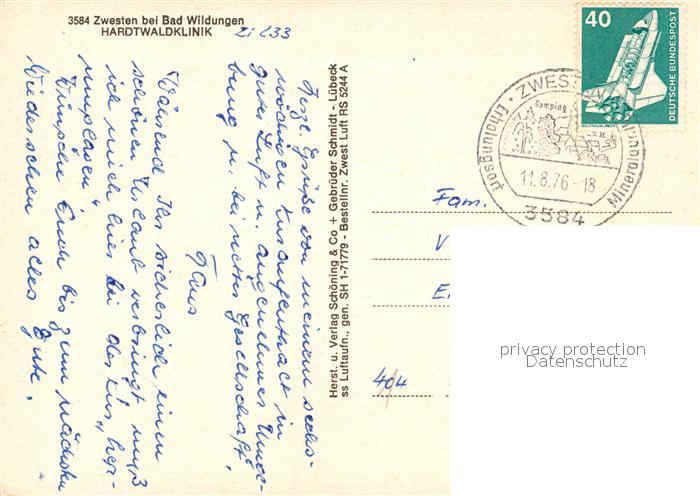 3584 Zwesten bei Bad Wildungen
HARDTWALDKLINIK
Zi 233
Herzl. Grüße von meinem sechs-
wöchigen Kuraufenthalt in
guter Luft u. angenehmer Umge-
bung u. bei netter Gesellschaft,
Hans
Während Ihr sicherlich einen
schönen Urlaub verbringt, muß
ich mich hier bei der Kur „her-
umplagen“
Wünschen Euch bis zum nächsten
Wiedersehen alles Gute.
Herst. u. Verlag Schöning & Co + Gebrüder Schmidt - Lübeck
ss Luftaufn., gen. SH 1-71779 - Bestellnr. Zwest Luft RS 5244 A
40
DEUTSCHE BUNDESPOST
WELTRAUMLABOR
ZWEST
Camping
Erholungsort
Mineral
11.8.76-18
3584
Fam.
V
404
privacy protection
Datenschutz